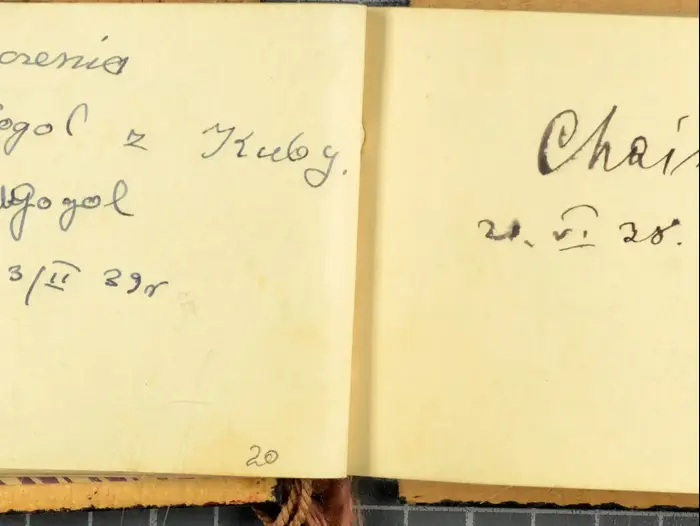 ozenia
ogol z Kuby.
Gogol
3/II 39r
20
Chai
21. VI 38.